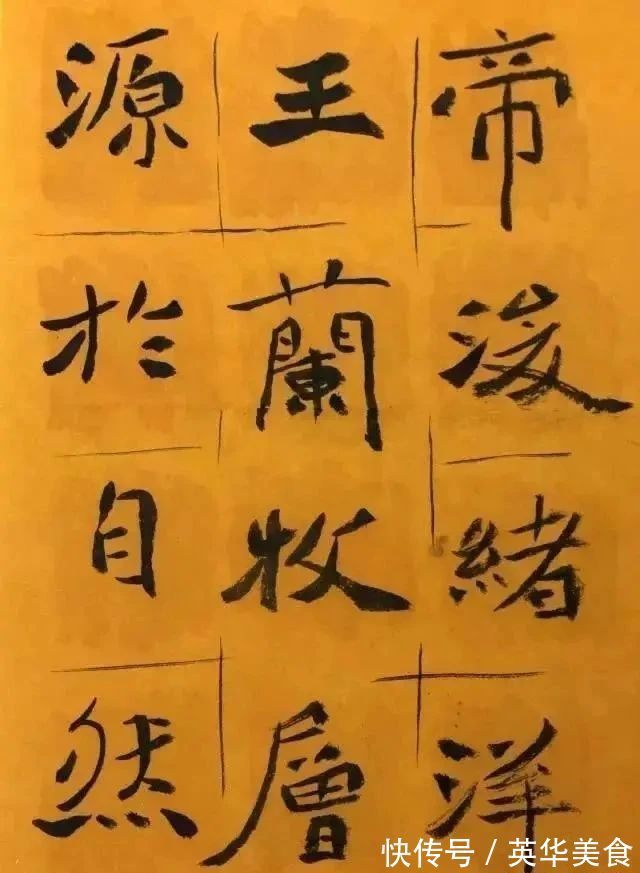 帝浚緒洋
王蘭牧層
源於自然
快传号 / 英华美食